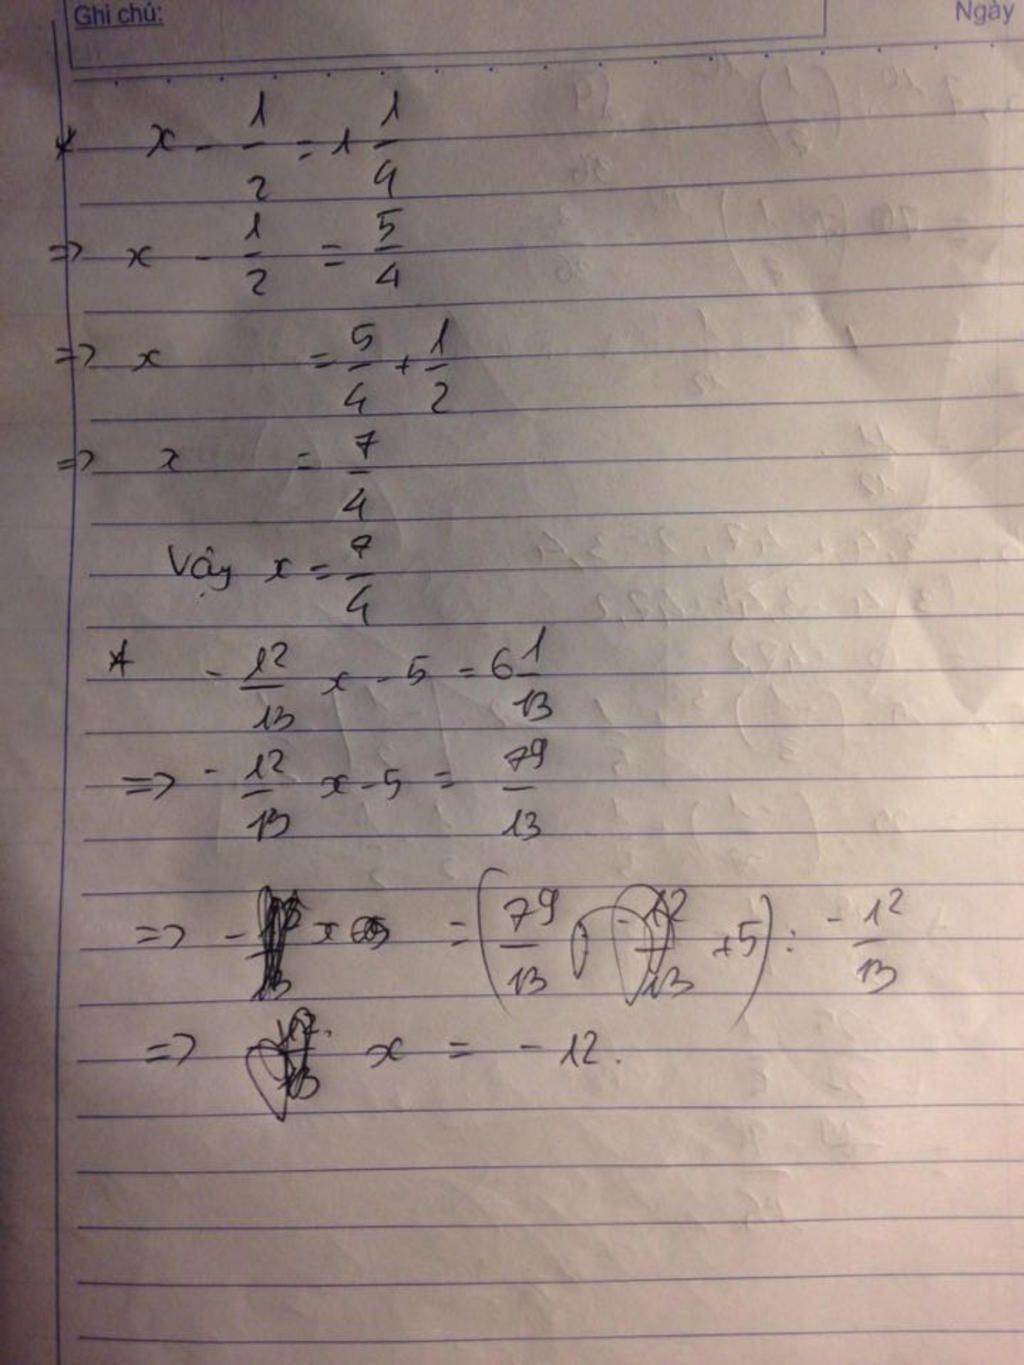 Ghi chú:
Ngày
* x - 1/2 = 1 1/4
=> x - 1/2 = 5/4
=> x = 5/4 + 1/2
=> x = 7/4
Vậy x = 7/4
* - 12/13 x - 5 = 6 1/13
=> - 12/13 x - 5 = 79/13
=> x = (79/13 + 5) : - 12/13
=> x = - 12.